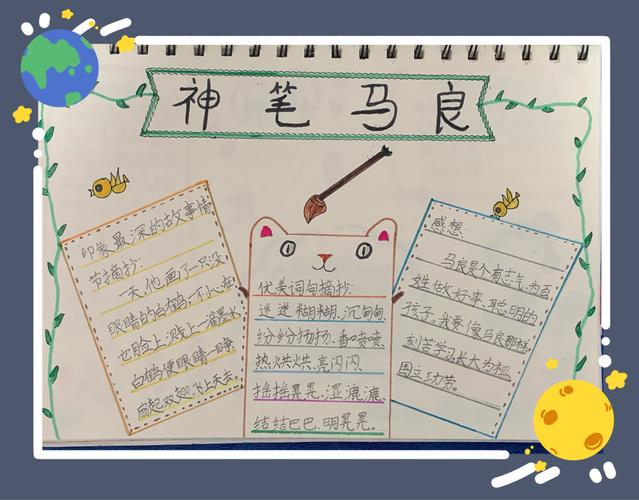 神笔马良
印象最深的故事情
节摘抄:
一天,他画了一只没
眼睛的白鹤,一不小心在
它脸上溅上一滴墨水,
白鹤便眼睛一睁,
扇起双翅飞上天去。
优美词句摘抄:
迷迷糊糊、沉甸甸
纷纷扬扬、香喷喷
热烘烘、亮闪闪、
摇摇晃晃、湿漉漉、
结结巴巴、明晃晃。
感想:
马良是个有志气、为百
姓做好事、聪明的
孩子。我要像马良那样,
刻苦学习,长大为祖
国立功劳。